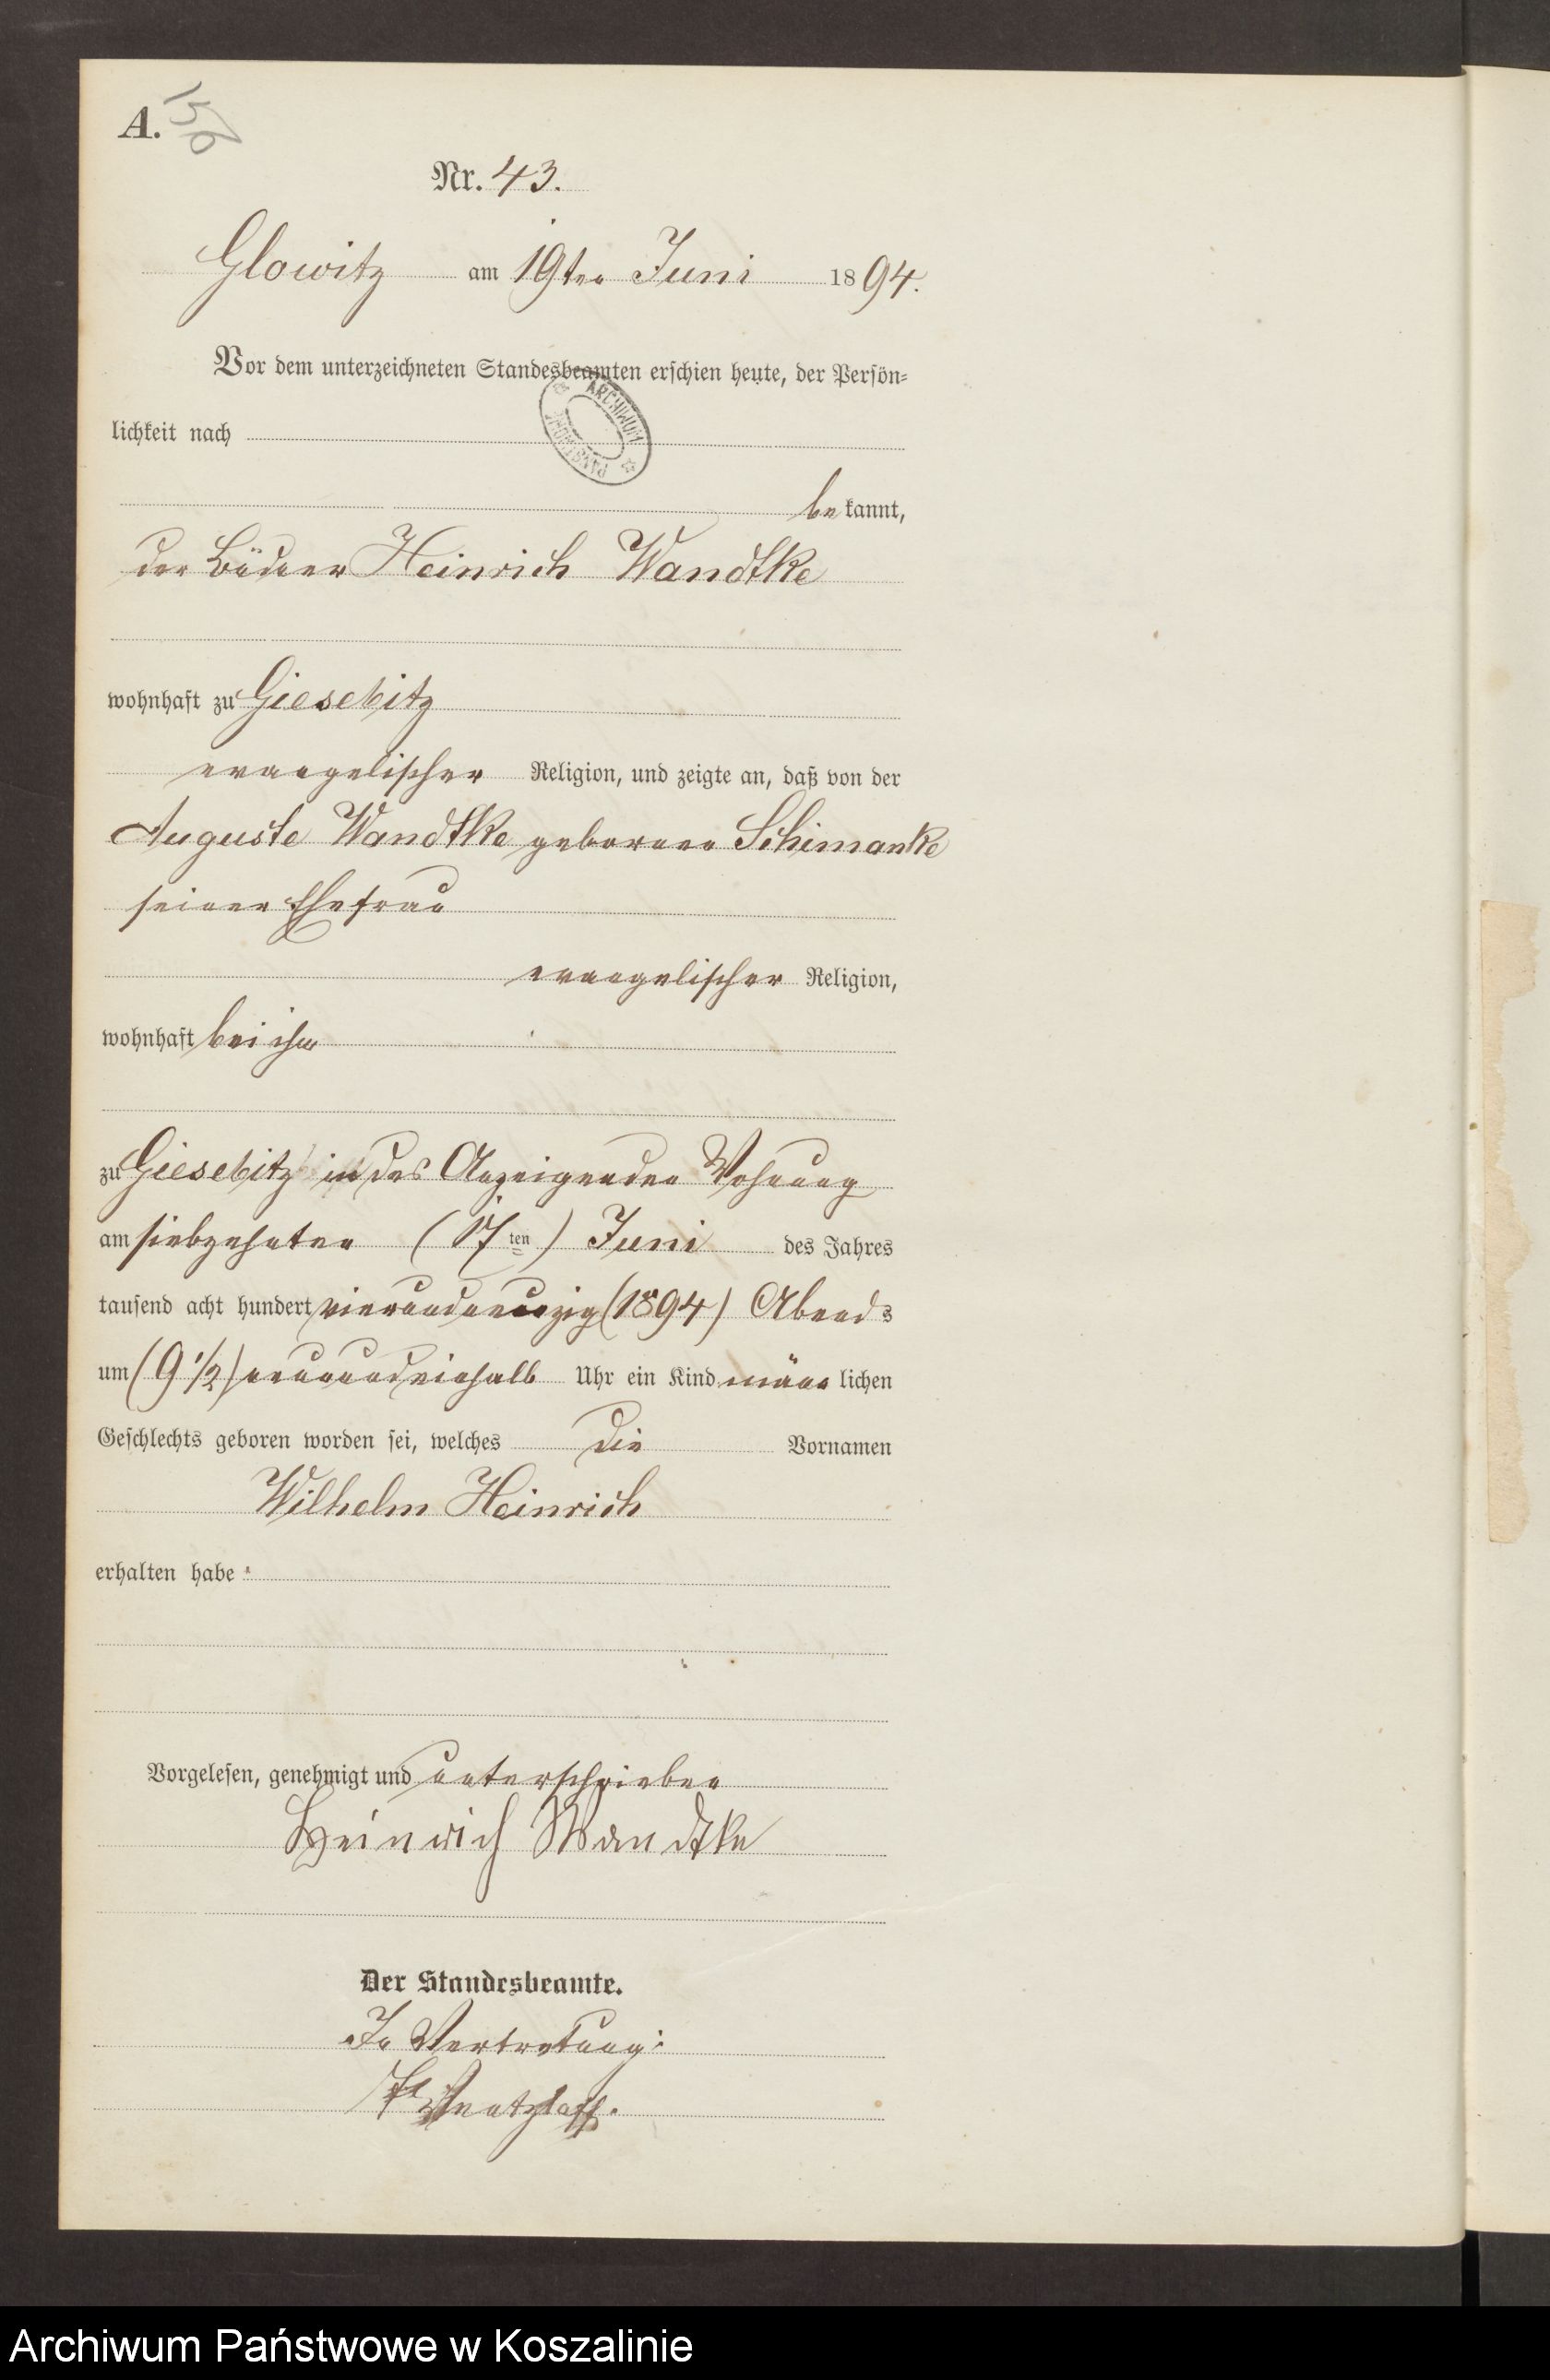 A.
156
Nr. 43.
Glowitz am 19ten Juni 1894.
Vor dem unterzeichneten Standesbeamten erschien heute, der Persön=
lichkeit nach
ARCHIWUM PAŃSTWOWE
bekannt,
der Büdner Heinrich Wandtke
wohnhaft zu Giesebitz
evangelischer Religion, und zeigte an, daß von der
Auguste Wandtke geborenen Schimanke
seiner Ehefrau
evangelischer Religion,
wohnhaft bei ihm
zu Giesebitz in des Anzeigenden Wohnung
am siebzehnten (17ten) Juni des Jahres
tausend acht hundert vierundneunzig (1894) Abends
um (9 1/2) neunundeinhalb Uhr ein Kind männlichen
Geschlechts geboren worden sei, welches die Vornamen
Wilhelm Heinrich
erhalten habe
Vorgelesen, genehmigt und unterschrieben
Heinrich Wandtke
Der Standesbeamte.
In Vertretung:
Ventzlaff.
Archiwum Państwowe w Koszalinie